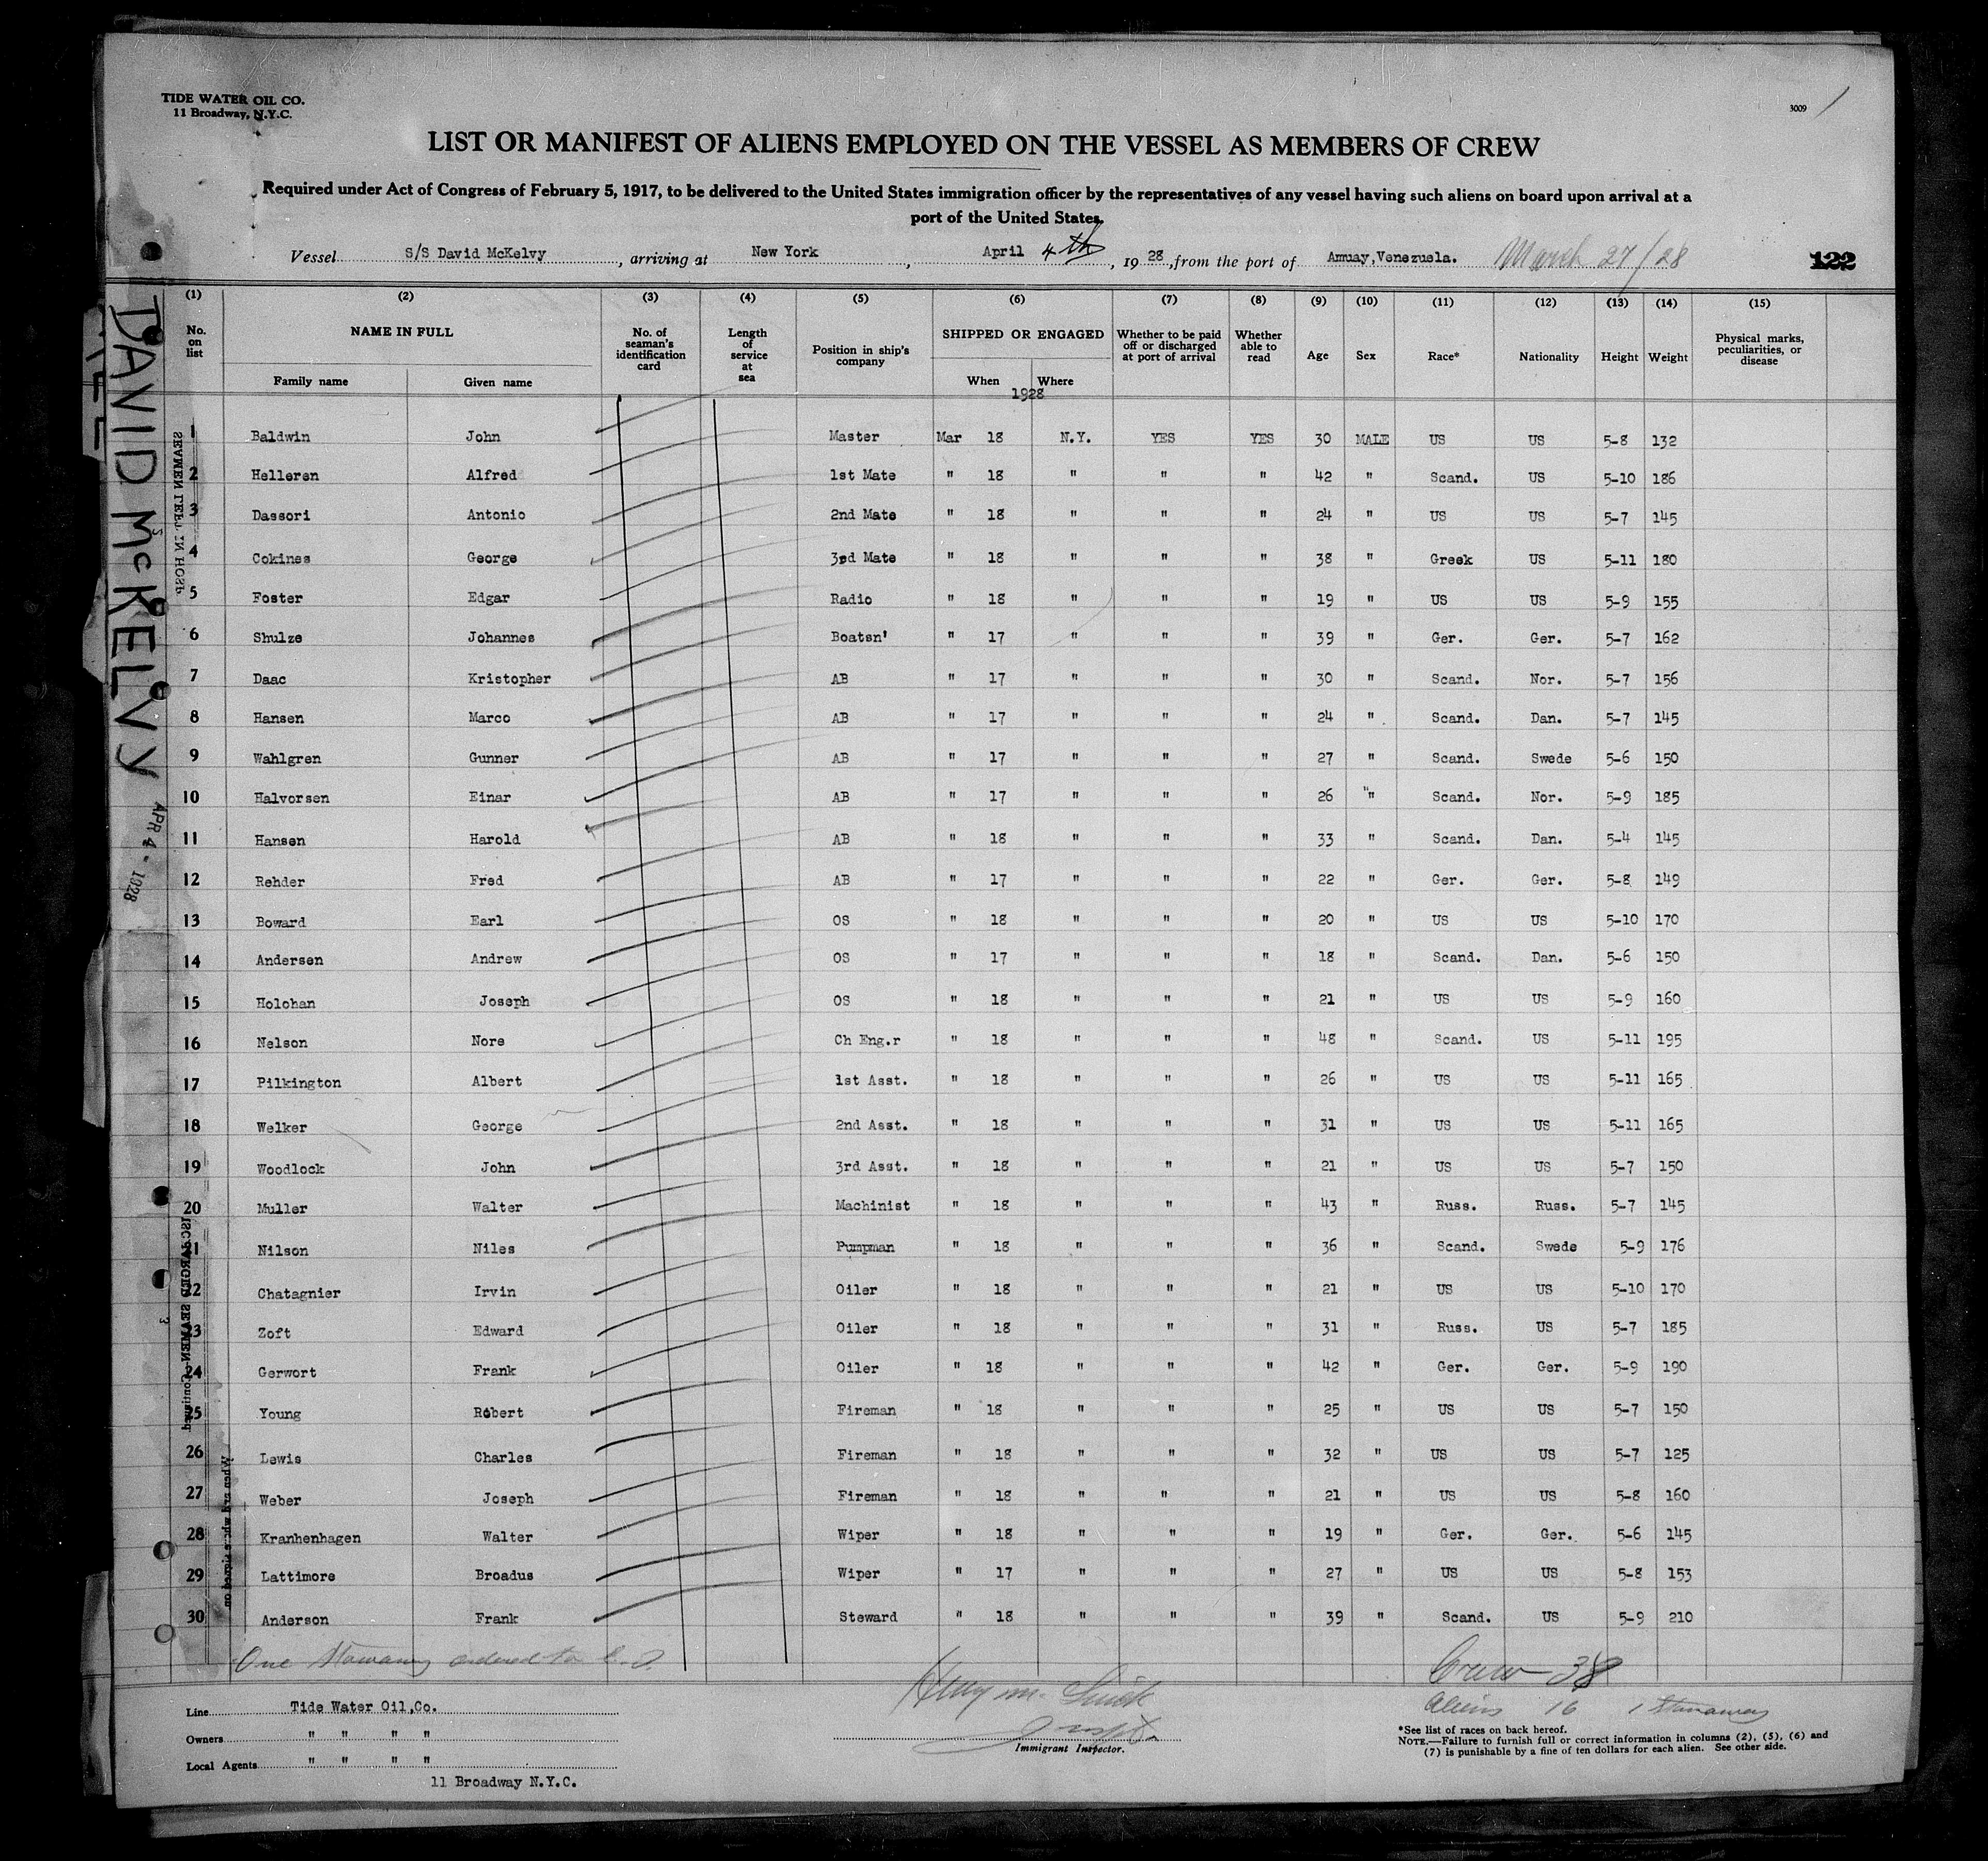 TIDE WATER OIL CO.
11 Broadway, N.Y.C.
3009 1
LIST OR MANIFEST OF ALIENS EMPLOYED ON THE VESSEL AS MEMBERS OF CREW
Required under Act of Congress of February 5, 1917, to be delivered to the United States immigration officer by the representatives of any vessel having such aliens on board upon arrival at a
port of the United States.
Vessel S/S David McKelvy, arriving at New York, April 4th, 1928, from the port of Amuay,Venezuela. March 27/28 122
(1) (2) (3) (4) (5) (6) (7) (8) (9) (10) (11) (12) (13) (14) (15)
No. on list NAME IN FULL Family name Given name No. of seaman's identification card Length of service at sea Position in ship's company SHIPPED OR ENGAGED When Where Whether to be paid off or discharged at port of arrival Whether able to read Age Sex Race* Nationality Height Weight Physical marks, peculiarities, or disease
1928
1 Baldwin John Master Mar 18 N.Y. YES YES 30 MALE US US 5-8 132
2 Helleren Alfred 1st Mate " 18 " " " 42 " Scand. US 5-10 186
3 Dassori Antonio 2nd Mate " 18 " " " 24 " US US 5-7 145
4 Cokines George 3rd Mate " 18 " " " 38 " Greek US 5-11 180
5 Foster Edgar Radio " 18 " " " 19 " US US 5-9 155
6 Shulze Johannes Boatsn' " 17 " " " 39 " Ger. Ger. 5-7 162
7 Daac Kristopher AB " 17 " " " 30 " Scand. Nor. 5-7 156
8 Hansen Marco AB " 17 " " " 24 " Scand. Dan. 5-7 145
9 Wahlgren Gunner AB " 17 " " " 27 " Scand. Swede 5-6 150
10 Halvorsen Einar AB " 17 " " " 26 " Scand. Nor. 5-9 185
11 Hansen Harold AB " 18 " " " 33 " Scand. Dan. 5-4 145
12 Rehder Fred AB " 17 " " " 22 " Ger. Ger. 5-8 149
13 Boward Earl OS " 18 " " " 20 " US US 5-10 170
14 Andersen Andrew OS " 17 " " " 18 " Scand. Dan. 5-6 150
15 Holohan Joseph OS " 18 " " " 21 " US US 5-9 160
16 Nelson Nore Ch Eng.r " 18 " " " 48 " Scand. US 5-11 195
17 Pilkington Albert 1st Asst. " 18 " " " 26 " US US 5-11 165
18 Welker George 2nd Asst. " 18 " " " 31 " US US 5-11 165
19 Woodlock John 3rd Asst. " 18 " " " 21 " US US 5-7 150
20 Muller Walter Machinist " 18 " " " 43 " Russ. Russ. 5-7 145
21 Nilson Niles Pumpman " 18 " " " 36 " Scand. Swede 5-9 176
22 Chatagnier Irvin Oiler " 18 " " " 21 " US US 5-10 170
23 Zoft Edward Oiler " 18 " " " 31 " Russ. US 5-7 185
24 Gerwort Frank Oiler " 18 " " " 42 " Ger. Ger. 5-9 190
25 Young Robert Fireman " 18 " " " 25 " US US 5-7 150
26 Lewis Charles Fireman " 18 " " " 32 " US US 5-7 125
27 Weber Joseph Fireman " 18 " " " 21 " US US 5-8 160
28 Kranhenhagen Walter Wiper " 18 " " " 19 " Ger. Ger. 5-6 145
29 Lattimore Broadus Wiper " 17 " " " 27 " US US 5-8 153
30 Anderson Frank Steward " 18 " " " 39 " Scand. US 5-9 210
One Stowaway ordered to
Crew 38
Aliens 16 1 Stowaway
Line Tide Water Oil,Co.
Owners " " " "
Local Agents " " " "
11 Broadway N.Y.C.
Immigrant Inspector.
*See list of races on back hereof.
NOTE.—Failure to furnish full or correct information in columns (2), (5), (6) and
(7) is punishable by a fine of ten dollars for each alien. See other side.
DAVID McKELVY
APR 4 - 1928
SEAMEN LEFT IN HOSP
DISCHARGED SEAMEN—Continued